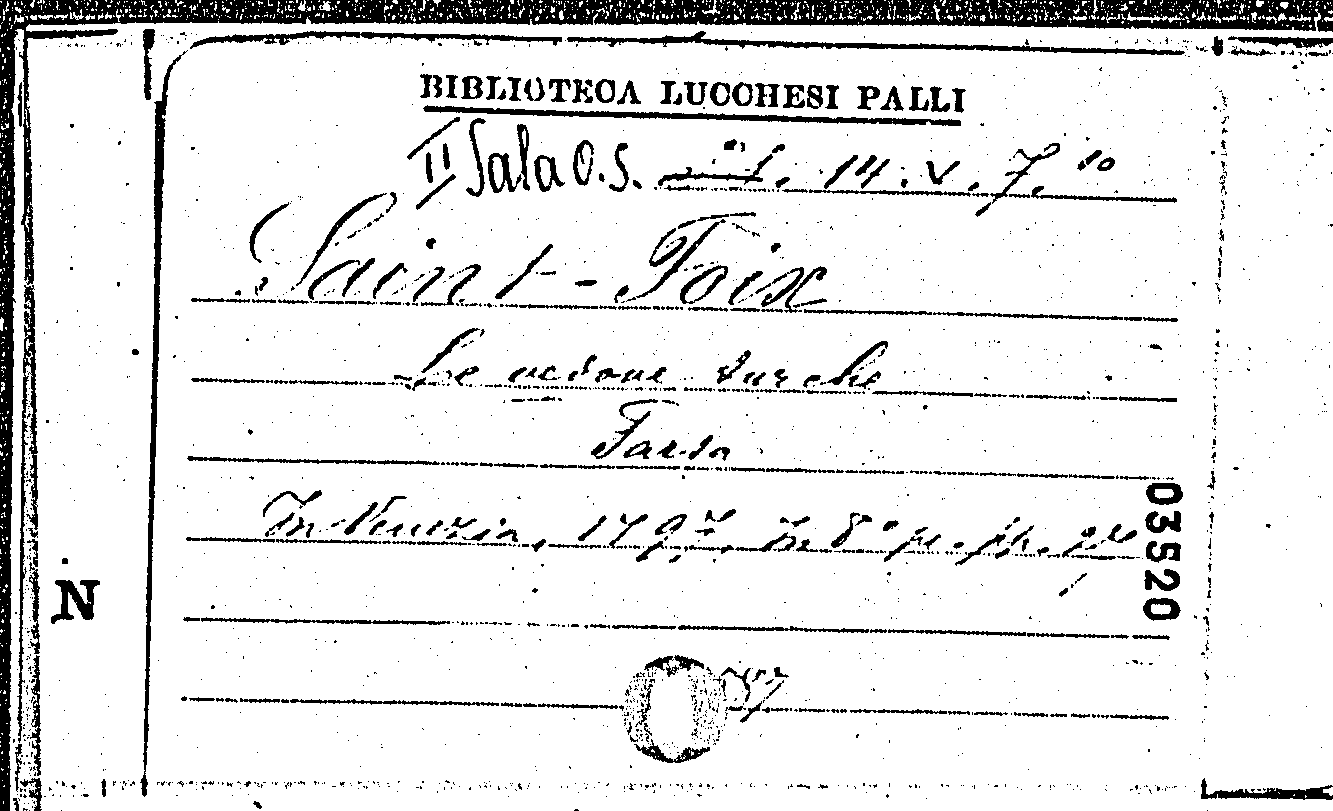 BIBLIOTECA LUCCHESI PALLI
II Sala O.S. 14. V. 7. 10
Saint-Foix
Le vedove turche
Farsa
In Venezia, 1797. In 8° p. p.
03520
N